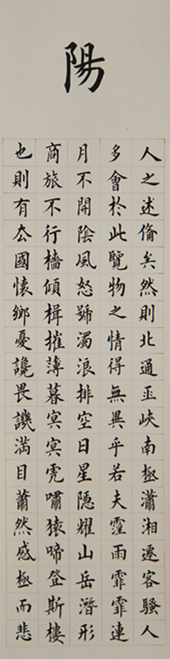 陽
人之述備矣然則北通巫峽南極瀟湘遷客騷人
多會於此覽物之情得無異乎若夫霪雨霏霏連
月不開陰風怒號濁浪排空日星隱耀山岳潛形
商旅不行檣傾楫摧薄暮冥冥虎嘯猿啼登斯樓
也則有去國懷鄉憂讒畏譏滿目蕭然感極而悲